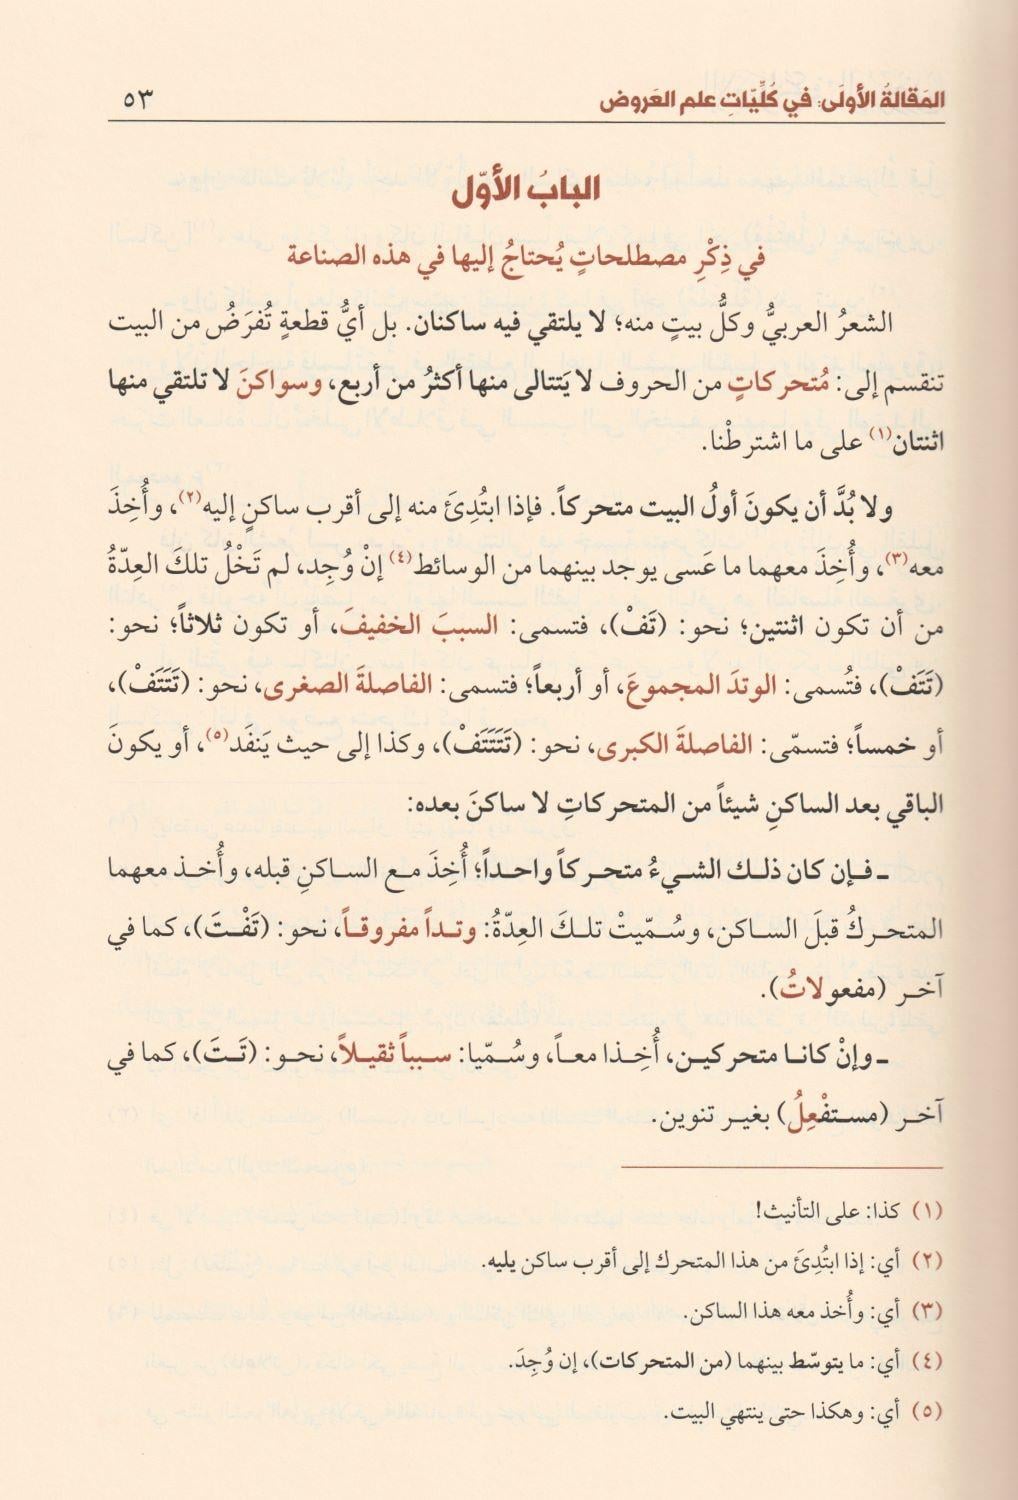 المَقَالةُ الأولَى: في كُلِّيّاتِ علم العَروض ٥٣
البابُ الأوّل
في ذِكْرِ مصطلحاتٍ يُحتاجُ إليها في هذه الصناعة
الشعرُ العربيُّ وكلُّ بيتٍ منه؛ لا يلتقي فيه ساكنان. بل أيُّ قطعةٍ تُفرَضُ من البيت
تنقسم إلى: مُتحركاتٍ من الحروف لا يَتتالى منها أكثرُ من أربع، وسواكنَ لا تلتقي منها
اثنتان(١) على ما اشترطْنا.
ولا بُدَّ أن يكونَ أولُ البيت متحركاً. فإذا ابتُدِئَ منه إلى أقرب ساكنٍ إليه(٢)، وأُخِذَ
معه(٣)، وأُخِذَ معهما ما عَسى يوجد بينهما من الوسائط(٤) إنْ وُجِد، لم تَخْلُ تلكَ العِدّةُ
من أن تكون اثنتين؛ نحو: (تَفْ)، فتسمى: السببَ الخفيفَ، أو تكون ثلاثاً؛ نحو:
(تَتَفْ)، فتُسمى: الوتدَ المجموعَ، أو أربعاً؛ فتسمى: الفاصلةَ الصغرى، نحو: (تَتَتَفْ)،
أو خمساً؛ فتسمّى: الفاصلةَ الكبرى، نحو: (تَتَتَتَفْ)، وكذا إلى حيث يَنفَد(٥)، أو يكونَ
الباقي بعد الساكنِ شيئاً من المتحركاتِ لا ساكنَ بعده:
ـ فـإن كان ذلـك الشـيءُ متحـركاً واحـداً؛ أُخِذَ مـع السـاكنِ قبله، وأُخـذ معهما
المتحـركُ قبلَ السـاكن، وسُـمّيتْ تلـكَ العِدّةُ: وتـداً مفروقـاً، نحـو: (تَفْـتَ)، كما في
آخـر (مفعولاتُ).
ـ وإنْ كانـا متحركيـن، أُخِـذا معـاً، وسُـمّيا: سـبباً ثقيـلاً، نحـو: (تَـتَ)، كما في
آخـر (مسـتفْعِلُ) بغيـر تنوين.
(١) كذا: على التأنيث!
(٢) أي: إذا ابتُدِئَ من هذا المتحرك إلى أقرب ساكن يليه.
(٣) أي: وأُخذ معه هذا الساكن.
(٤) أي: ما يتوسّط بينهما (من المتحركات)، إن وُجِدَ.
(٥) أي: وهكذا حتى ينتهي البيت.